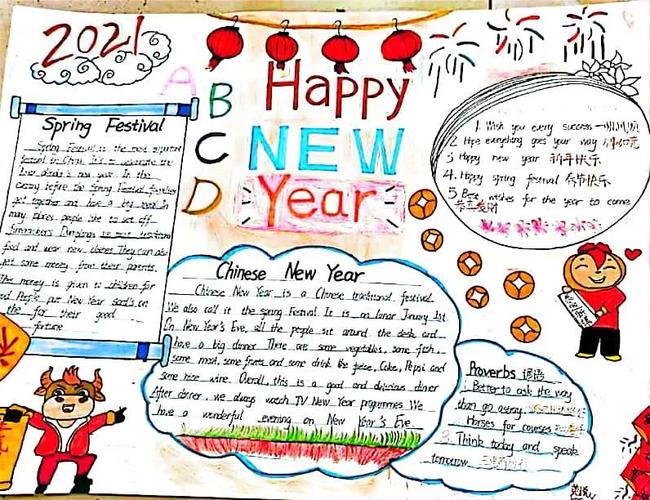 2021
Happy
NEW
Year
A
B
C
D
Spring Festival
Spring Festival is the most important
festival in China. It's to celebrate the
lunar calendar's new year. In the
evening before the Spring Festival families
get together and have a big meal. In
many places people like to set off
firecrackers. Dumplings is most traditional
food and wear new clothes. They can also
get some money from their parents.
The money is given to children for
People put New Year on
the for their good
fortune
1. Wish you every success 一帆风顺
2. Hope everything goes your way
3. Happy new year 新年快乐
4. Happy spring festival 春节快乐
5. Best wishes for the year to come
恭喜发财
Chinese New Year
Chinese New Year is a Chinese traditional festival.
We also call it the spring Festival. It is on lunar Jnuary 1st.
On New Year's Eve, all the people sit around the desk and
have a big dinner. There are some vegetables, some fish,
some meat, some fruits and some drink like juice, Coke, Pepsi and
some rice wine. Overall, this is a good and delicious dinner
After dinner, we always watch TV New Year programmes. We
have a wonderful evening on New Year's Eve.
Proverbs 谚语
1. Better to ask the way
than go astray.
Horses for courses
3. Think today and speak
tomorrow.